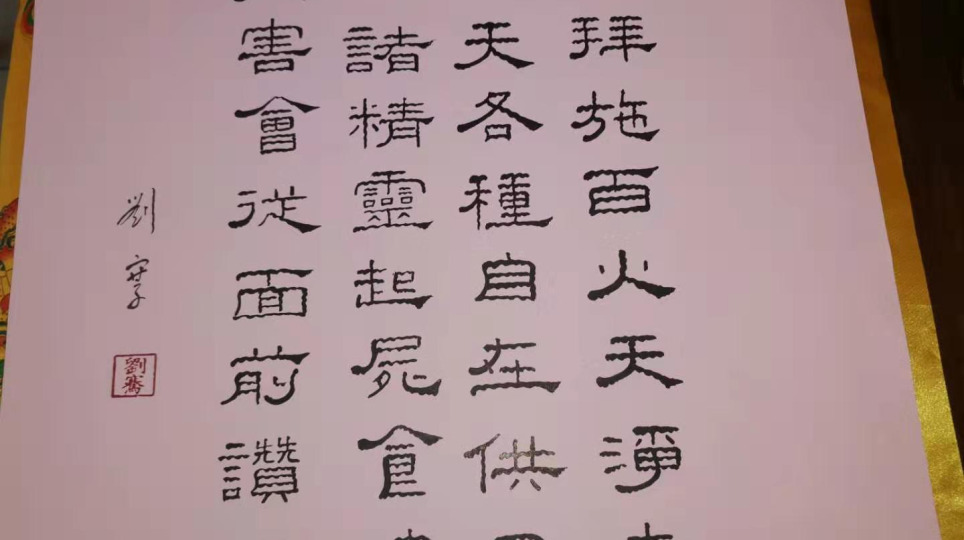 拜施百火天淨
天各種自在供
諸精靈起屍食
害會從面前讚
劉
劉騫